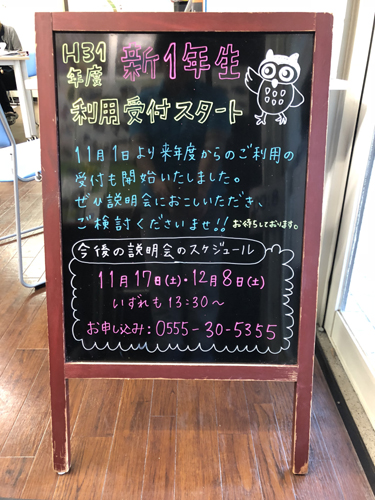 H31年度 新1年生
利用受付スタート
11月1日より来年度からのご利用の
受付も開始いたしました。
ぜひ説明会におこしいただき、
ご検討くださいませ!! お待ちしております。
今後の説明会のスケジュール
11月17日(土)・12月8日(土)
いずれも13:30～
お申し込み:0555-30-5355